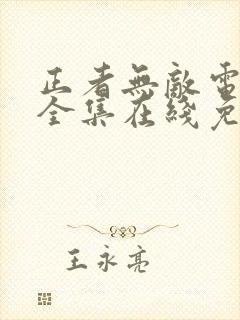 正者無敵電
全集在綫免
王永亮